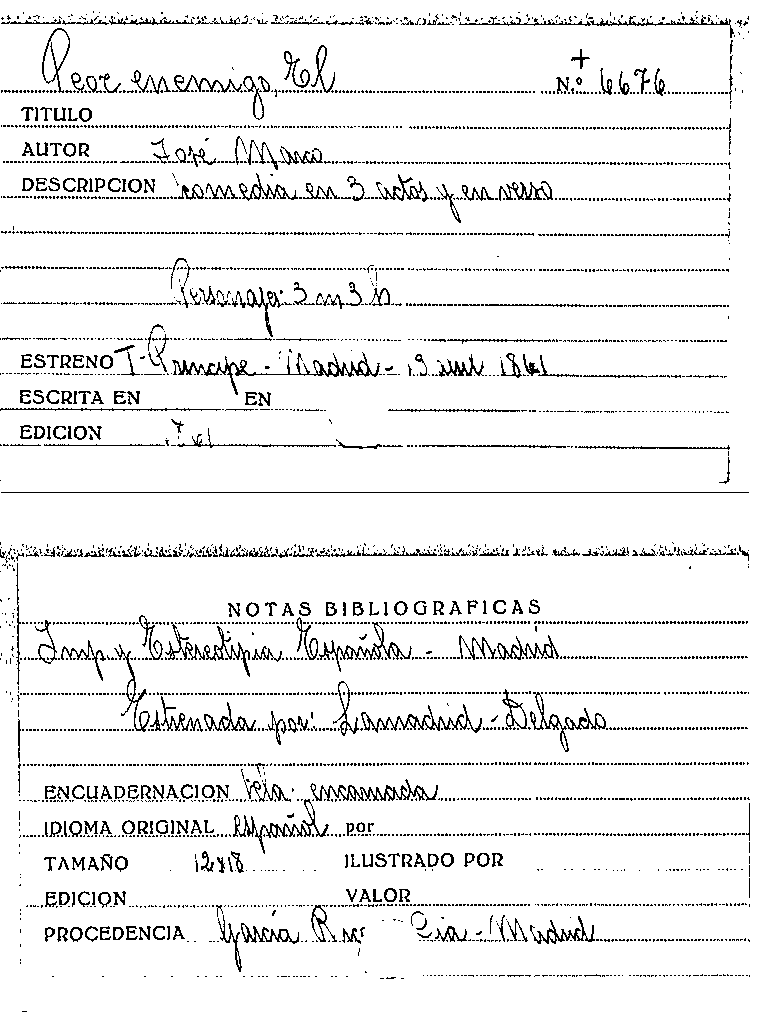 Peor enemigo, El
+
N.º 6676
TITULO
AUTOR José Marco
DESCRIPCION comedia en 3 actos y en verso
Personajes: 3 m 3 h
ESTRENO T- Principe - Madrid - 1861
ESCRITA EN EN
EDICION
NOTAS BIBLIOGRAFICAS
Imp y Estereotipia Española - Madrid
Estrenada por: Lamadrid - Delgado
ENCUADERNACION tela encarnada
IDIOMA ORIGINAL español por
TAMAÑO 12x18 ILUSTRADO POR
EDICION VALOR
PROCEDENCIA García Cia - Madrid